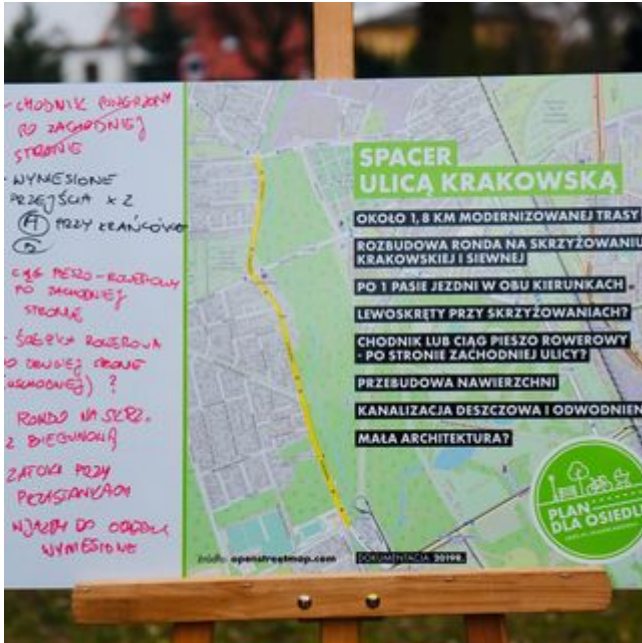 - CHODNIK
PO ZACHODNIEJ
STRONIE
- WYNIESIONE
PRZEJŚCIA x 2
PRZY KRAŃCÓWCE
CIĄG PIESZO-ROWEROWY
PO ZACHODNIEJ
STRONIE
- ŚCIEŻKA ROWEROWA
PO DRUGIEJ STRONIE
(WSCHODNIEJ) ?
RONDO NA SKRZ.
Z BIEGUNOWĄ
ZATOKI PRZY
PRZYSTANKACH
WJAZDY DO
WYNIESIONE
SPACER
ULICĄ KRAKOWSKĄ
OKOŁO 1,8 KM MODERNIZOWANEJ TRASY
ROZBUDOWA RONDA NA SKRZYŻOWANIU
KRAKOWSKIEJ I SIEWNEJ
PO 1 PASIE JEZDNI W OBU KIERUNKACH
LEWOSKRĘTY PRZY SKRZYŻOWANIACH?
CHODNIK LUB CIĄG PIESZO ROWEROWY
- PO STRONIE ZACHODNIEJ ULICY?
PRZEBUDOWA NAWIERZCHNI
KANALIZACJA DESZCZOWA I ODWODNIEN
MAŁA ARCHITEKTURA?
PLAN
DLA OSIEDLI
źródło: openstreetmap.com
DOKUMENTACJA: 2019R.